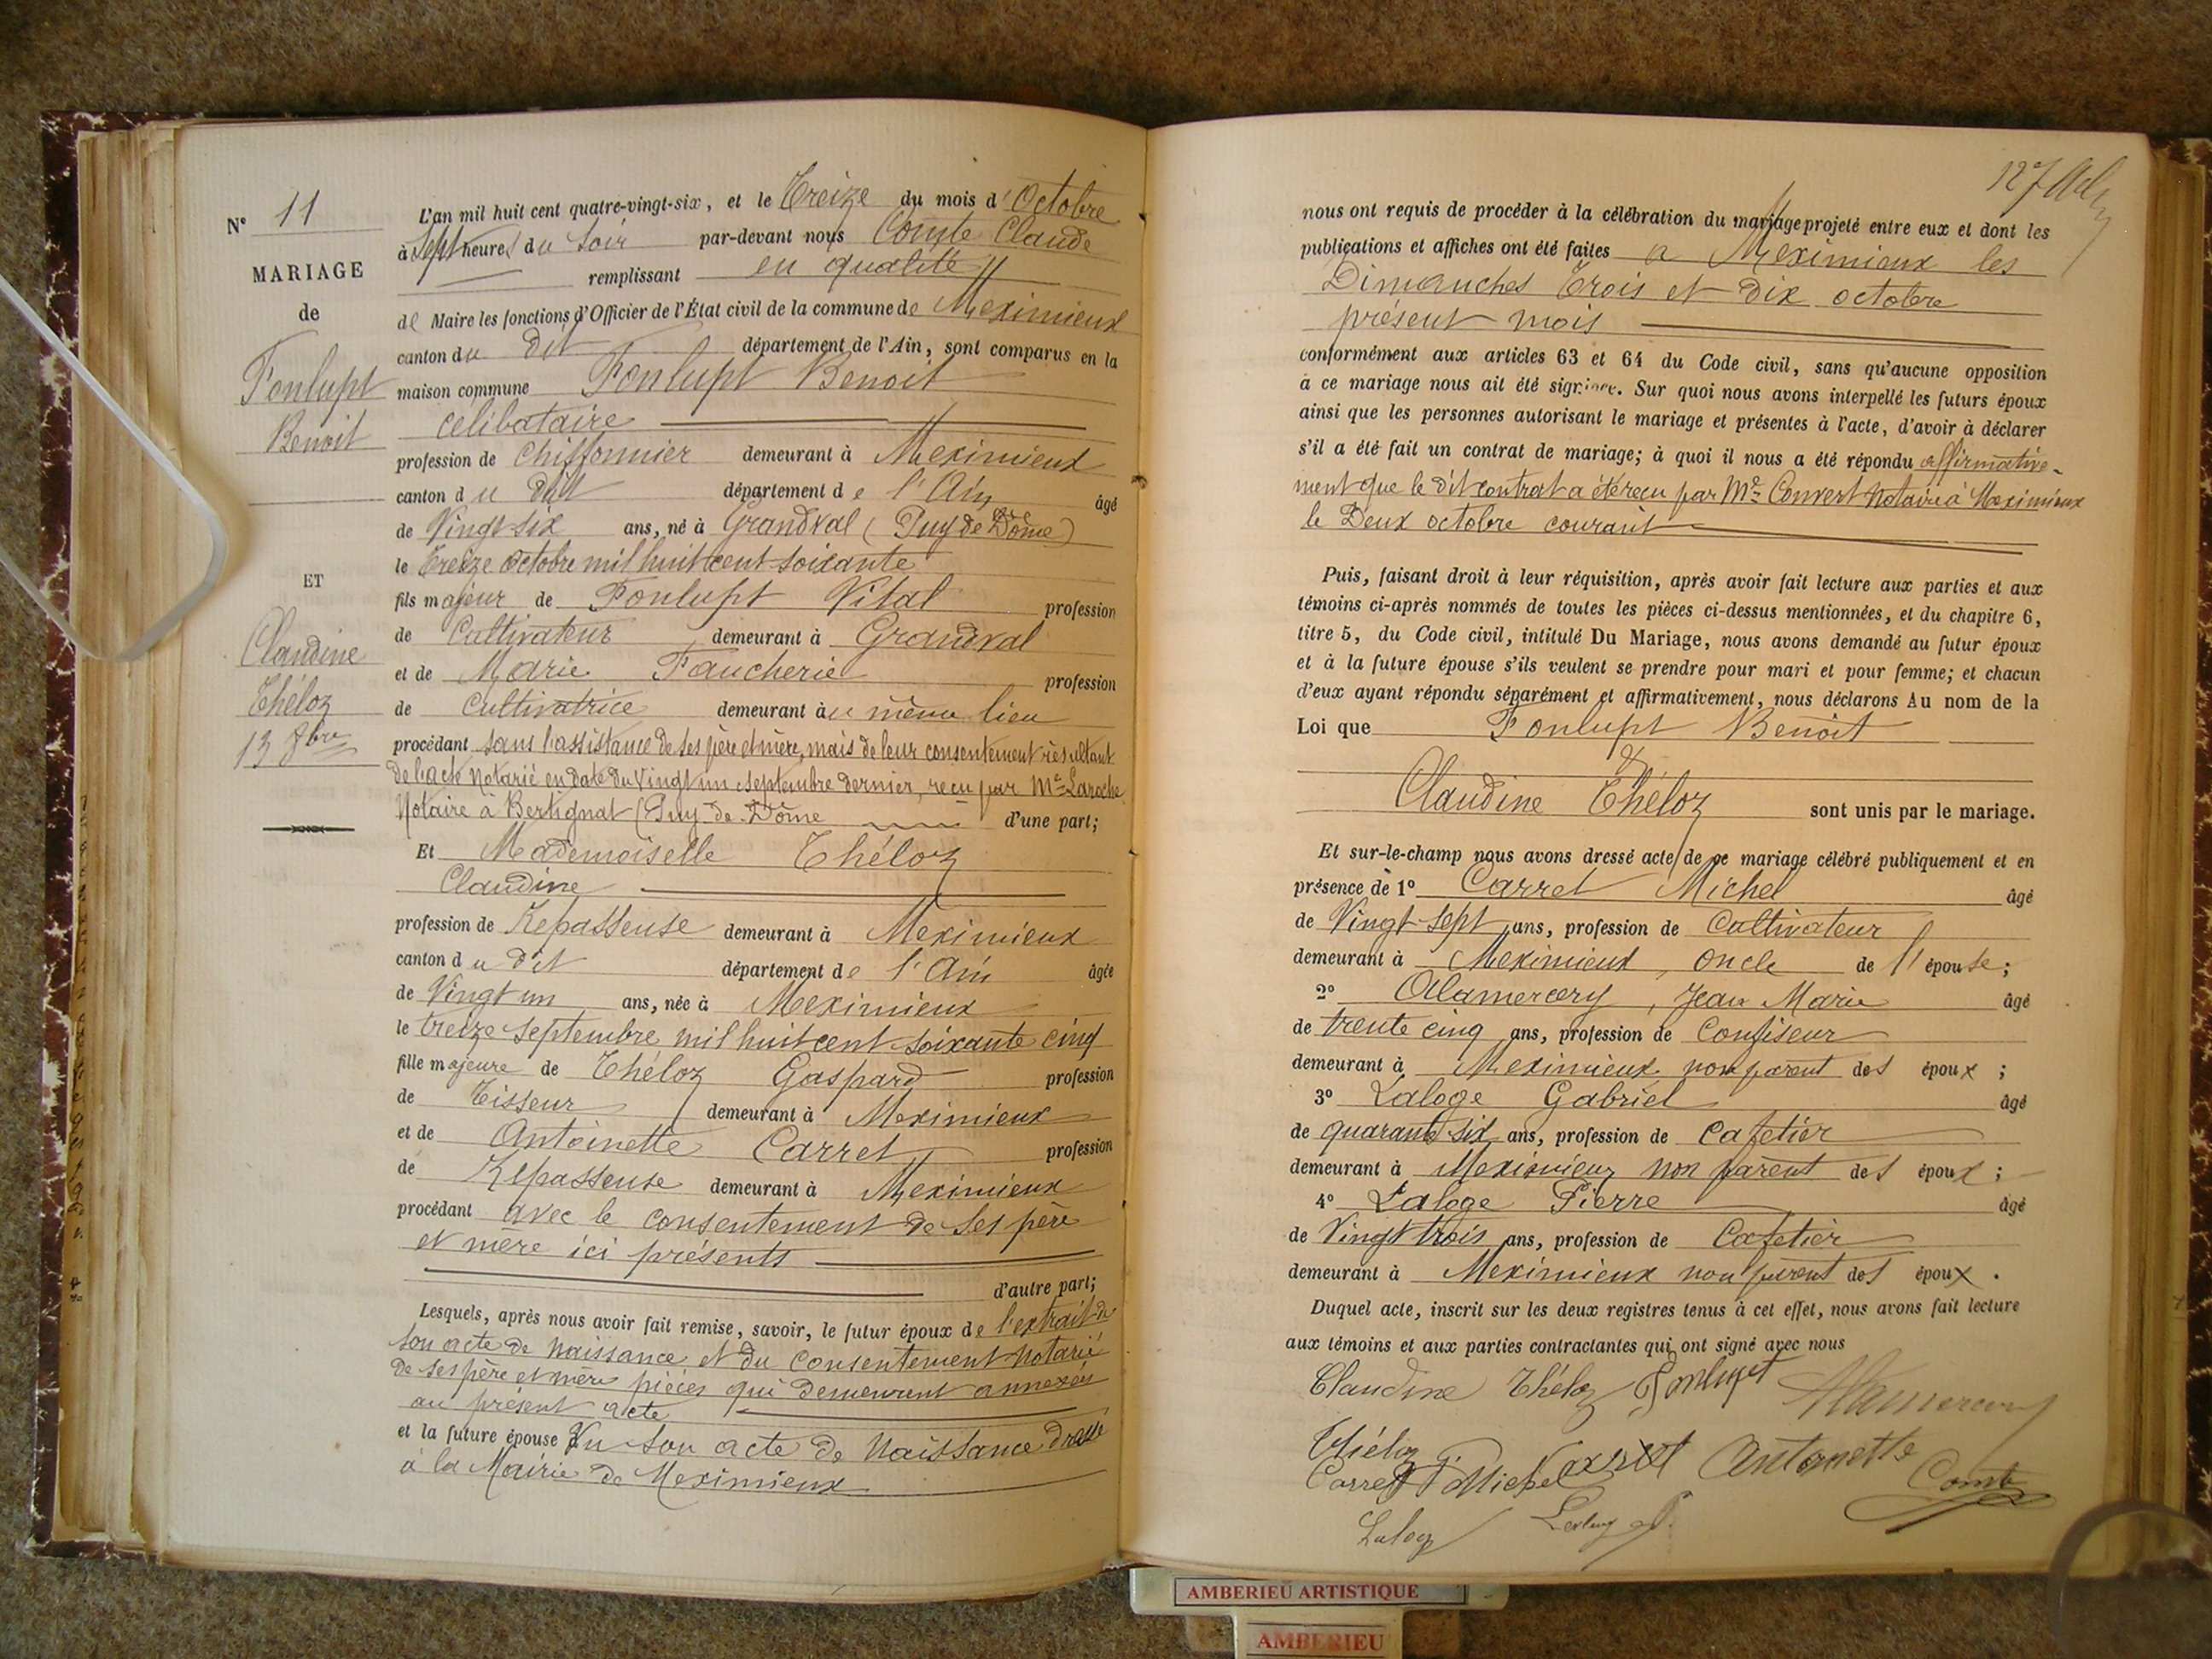 N° 11
MARIAGE
de
Fonlupt
Benoit
ET
Claudine
Théloz
13 8bre
L'an mil huit cent quatre-vingt-six, et le Treize du mois d'Octobre
à Sept heures du Soir par-devant nous Comte Claude
remplissant en qualité
de Maire les fonctions d'Officier de l'État civil de la commune de Meximieux
canton du dit département de l'Ain, sont comparus en la
maison commune Fonlupt Benoit
célibataire
profession de Chiffonnier demeurant à Meximieux
canton du dit département de l'Ain âgé
de Vingt six ans, né à Grandval (Puy de Dôme)
le Treize Octobre mil huit cent soixante
fils majeur de Fonlupt Vital profession
de Cultivateur demeurant à Grandval
et de Marie Faucherie profession
de Cultivatrice demeurant au même lieu
procédant sans l'assistance de ses père et mère, mais de leur consentement résultant
de l'acte Notarié en date du Vingt un septembre dernier, reçu par Me Laroche
Notaire à Bertignat (Puy-de-Dôme d'une part;
Et Mademoiselle Théloz
Claudine
profession de Repasseuse demeurant à Meximieux
canton du dit département de l'Ain âgée
de Vingt un ans, née à Meximieux
le treize septembre mil huit cent soixante cinq
fille majeure de Théloz Gaspard profession
de Tisseur demeurant à Meximieux
et de Antoinette Carret profession
de Repasseuse demeurant à Meximieux
procédant avec le consentement de ses père
et mère ici présents
d'autre part;
Lesquels, après nous avoir fait remise, savoir, le futur époux de l'extrait de
son acte de Naissance et du consentement Notarié
de ses père et mère pièces qui demeurent annexées
au présent acte
et la future épouse Vu son acte de Naissance dressé
à la Mairie de Meximieux
127
nous ont requis de procéder à la célébration du mariage projeté entre eux et dont les
publications et affiches ont été faites a Meximieux les
Dimanches Trois et dix octobre
présent mois
conformément aux articles 63 et 64 du Code civil, sans qu'aucune opposition
à ce mariage nous ait été signifiée. Sur quoi nous avons interpellé les futurs époux
ainsi que les personnes autorisant le mariage et présentes à l'acte, d'avoir à déclarer
s'il a été fait un contrat de mariage; à quoi il nous a été répondu affirmative-
ment que le dit contrat a été reçu par Me Convert Notaire à Meximieux
le Deux octobre courant
Puis, faisant droit à leur réquisition, après avoir fait lecture aux parties et aux
témoins ci-après nommés de toutes les pièces ci-dessus mentionnées, et du chapitre 6,
titre 5, du Code civil, intitulé Du Mariage, nous avons demandé au futur époux
et à la future épouse s'ils veulent se prendre pour mari et pour femme; et chacun
d'eux ayant répondu séparément et affirmativement, nous déclarons Au nom de la
Loi que Fonlupt Benoit
&
Claudine Théloz sont unis par le mariage.
Et sur-le-champ nous avons dressé acte de ce mariage célébré publiquement et en
présence de 1° Carret Michel âgé
de Vingt-sept ans, profession de Cultivateur
demeurant à Meximieux, oncle de l'épouse;
2° Alamercery, Jean Marie âgé
de trente cinq ans, profession de Confiseur
demeurant à Meximieux non parent des époux;
3° Laloge Gabriel âgé
de quarante six ans, profession de Cafetier
demeurant à Meximieux non parent des époux;
4° Laloge Pierre âgé
de Vingt trois ans, profession de Cafetier
demeurant à Meximieux non parent des époux.
Duquel acte, inscrit sur les deux registres tenus à cet effet, nous avons fait lecture
aux témoins et aux parties contractantes qui ont signé avec nous
Claudine Théloz Fonlupt Alamercery
Théloz
Carret Michel Carret Antoinette Comte
AMBERIEU ARTISTIQUE
AMBERIEU